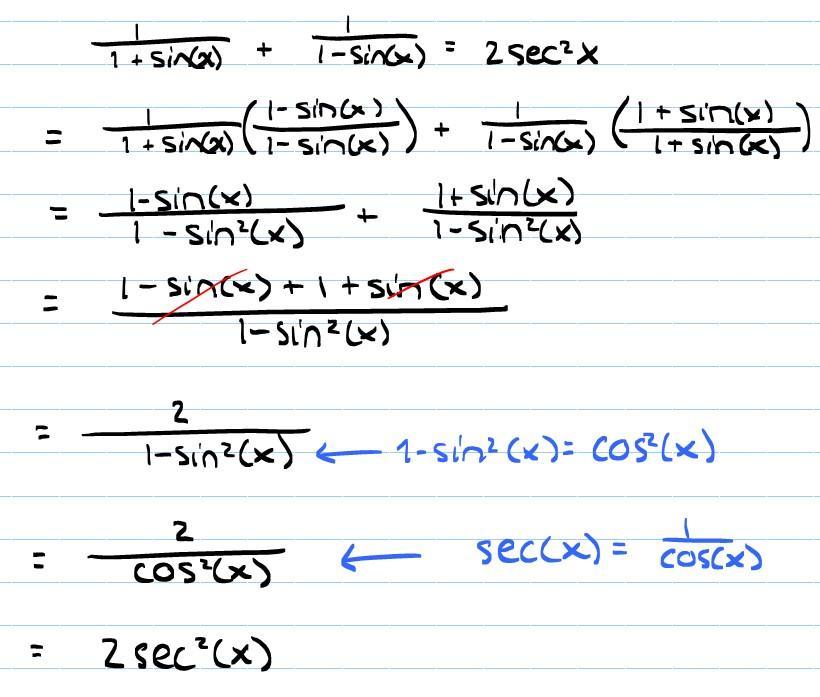 1/(1 + sin(x)) + 1/(1 - sin(x)) = 2sec²x
= 1/(1 + sin(x)) ((1 - sin(x))/(1 - sin(x))) + 1/(1 - sin(x)) ((1 + sin(x))/(1 + sin(x)))
= (1 - sin(x))/(1 - sin²(x)) + (1 + sin(x))/(1 - sin²(x))
= (1 - sin(x) + 1 + sin(x))/(1 - sin²(x))
= 2/(1 - sin²(x)) ← 1 - sin²(x) = cos²(x)
= 2/cos²(x) ← sec(x) = 1/cos(x)
= 2sec²(x)